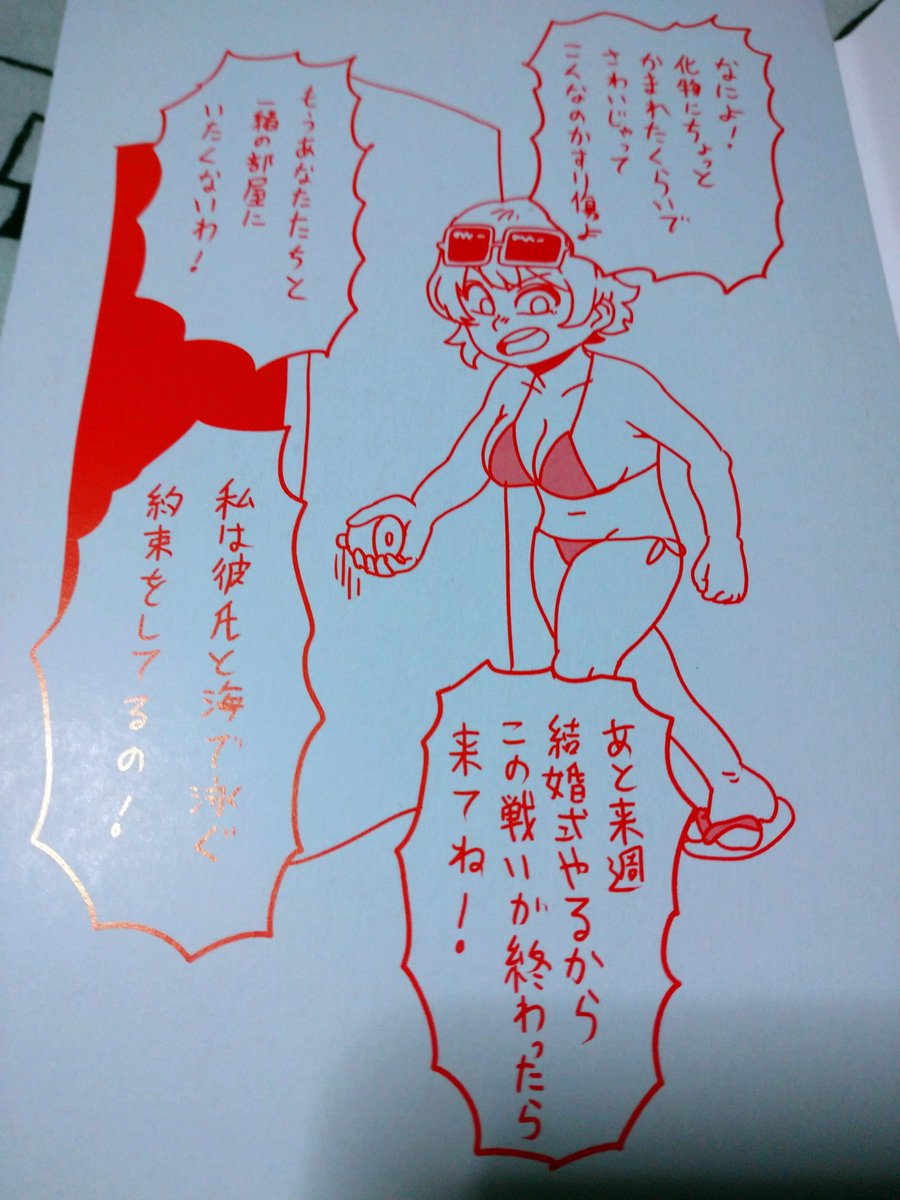 なによ!
化物にちょっと
かまれたくらいで
さわいじゃって
こんなのかすり傷よ
もうあなたたちと
一緒の部屋に
いたくないわ!
私は彼氏と海で泳ぐ
約束をしてるの!
あと来週
結婚式やるから
この戦いが終わったら
来てね!